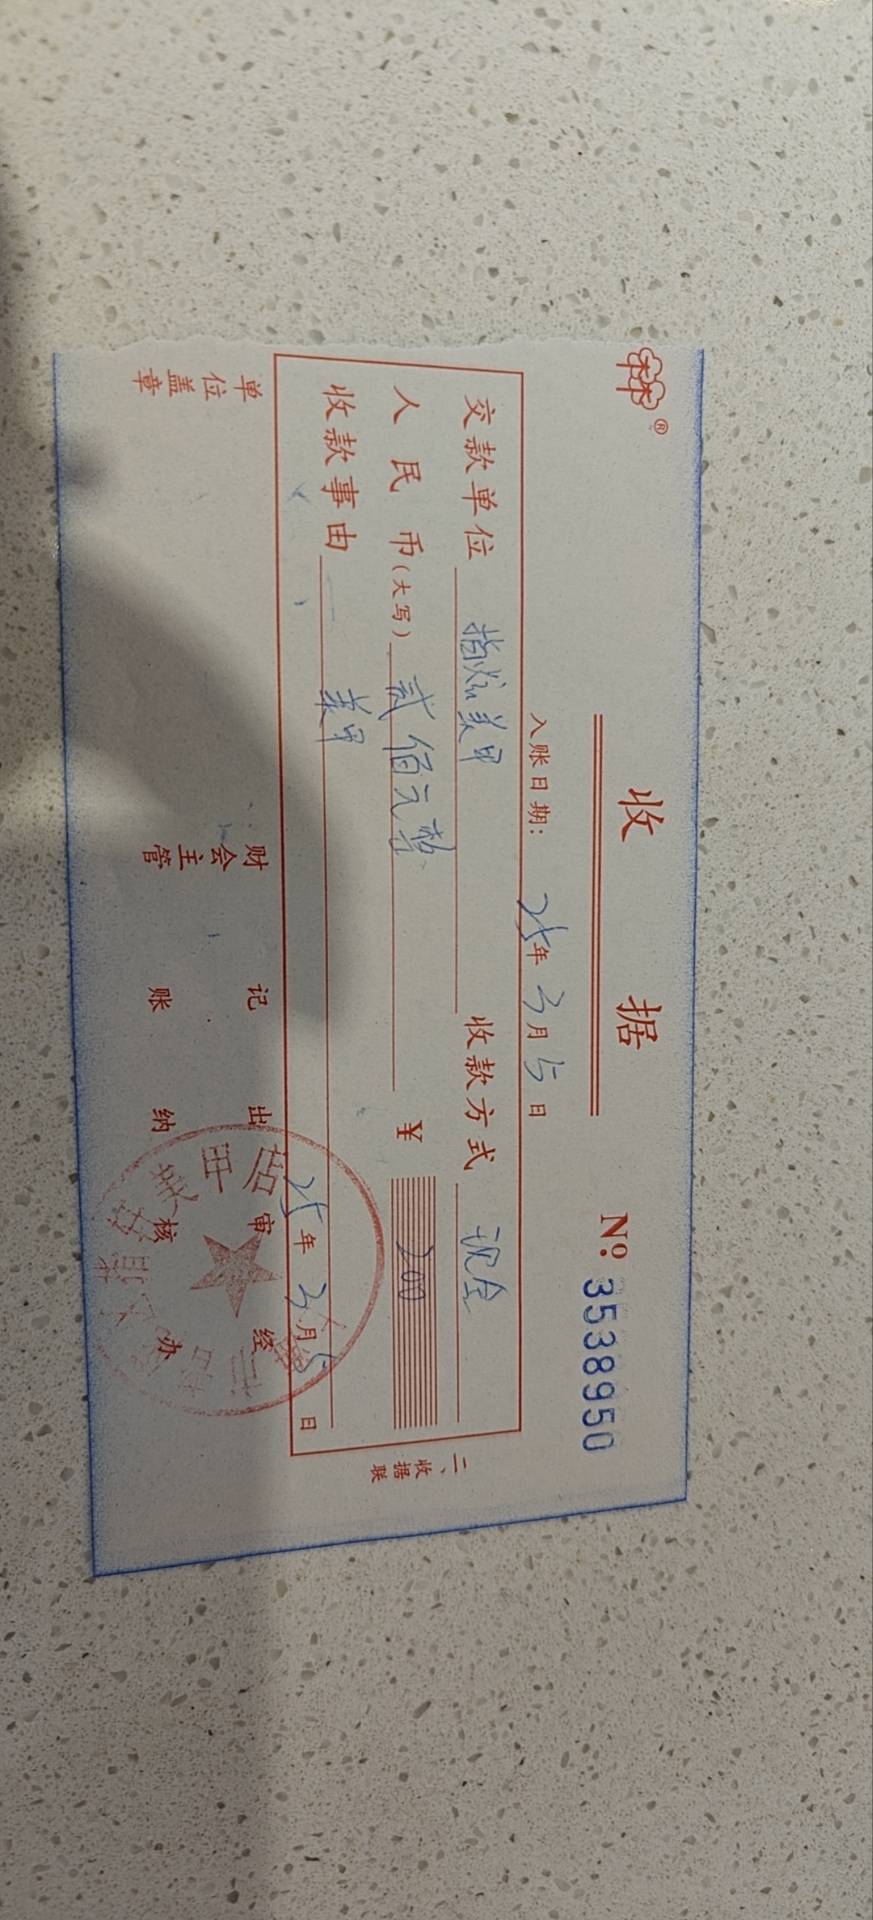 收 据
№ 3538950
入账日期： 25年 3月 5日
交款单位 美甲 收款方式 现金
人民币(大写) 贰佰元整 ¥ 200
收款事由 美甲
25年 3月 5日
二、收据联
单位盖章 财会主管 记账 出纳 审核 经办
美甲店